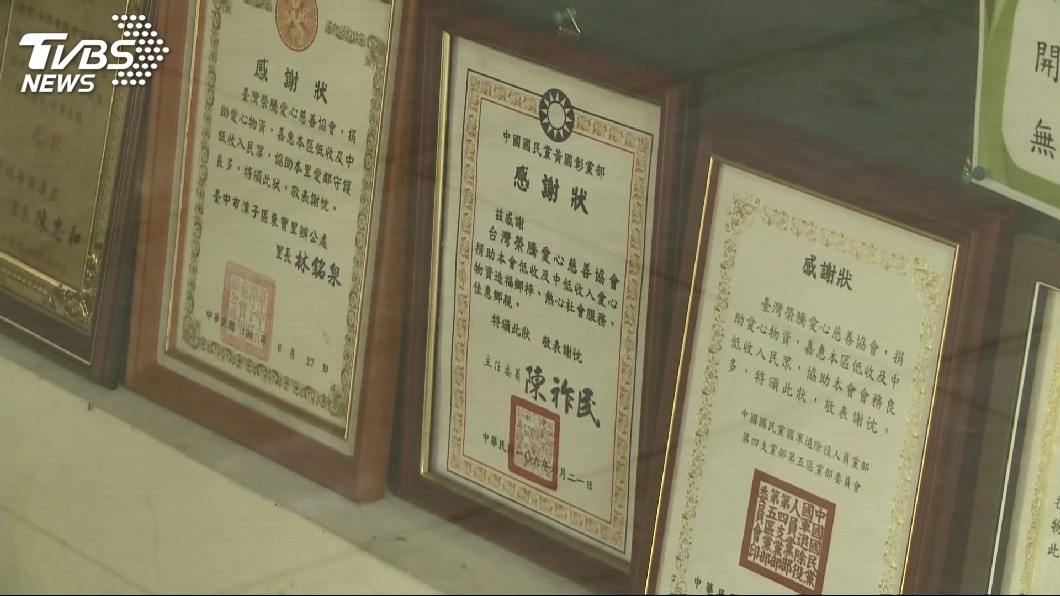 TVBS
NEWS
里長 陳忠和
感謝狀
臺灣榮騰愛心慈善協會，捐
助愛心物資，嘉惠本區低收及中
低收入民眾，協助本里愛鄰守護
良多，特頒此狀，敬表謝忱。
臺中市潭子區東寶里辦公處
里長 林銘泉
中華民國
月 27 日
中國國民黨黃國彰黨部
感謝狀
茲感謝
台灣榮騰愛心慈善協會
捐助本會低收及中低收入愛心
物資造福鄉梓、熱心社會服務、
佳惠鄉親。
特頒此狀 敬表謝忱
主任委員 陳祚民
中華民國一0六年 月二一日
感謝狀
臺灣榮騰愛心慈善協會，捐
助愛心物資，嘉惠本區低收及中
低收入民眾，協助本會會務良
多，特頒此狀，敬表謝忱。
中國國民黨國軍退除役人員黨部
第四支黨部第五區黨部委員會
中國國民黨
國軍退除役
人員黨部
第四支黨部
第五區黨部
委員會印
中華民
開
無